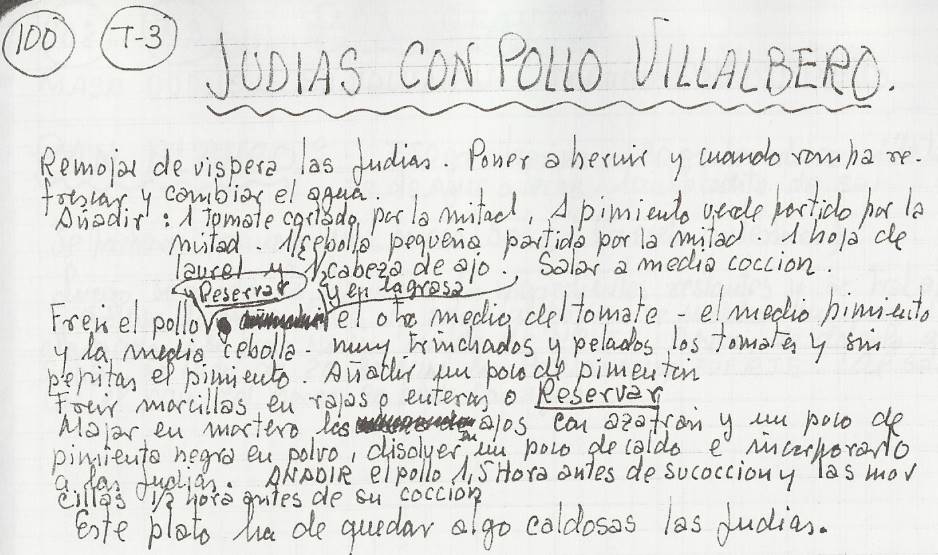 100 T-3
JUDIAS CON POLLO VILLALBERO.
Remojar de vispera las Judias. Poner a hervir y cuando rompa re-
frescar y cambiar el agua.
Añadir: 1 tomate cortado por la mitad, 1 pimiento verde partido por la
mitad. 1 cebolla pequeña partida por la mitad. 1 hoja de
laurel y 1/2 cabeza de ajo. Salar a media coccion.
y Reservar y en la grasa
Freir el pollo el otro medio del tomate - el medio pimiento
y la media cebolla. muy trinchados y pelados los tomates y sin
pepitas el pimiento. Añadir un poco de pimenton
Freir morcillas en rajas o enteras o Reservar
Majar en mortero los ajos con azafran y un poco de
pimienta negra en polvo, disolver en un poco de caldo e incorporarlo
a las Judias. AÑADIR el pollo 1,5 Hora antes de su coccion y las mor
cillas 1/2 hora antes de su coccion
Este plato ha de quedar algo caldosas las judias.